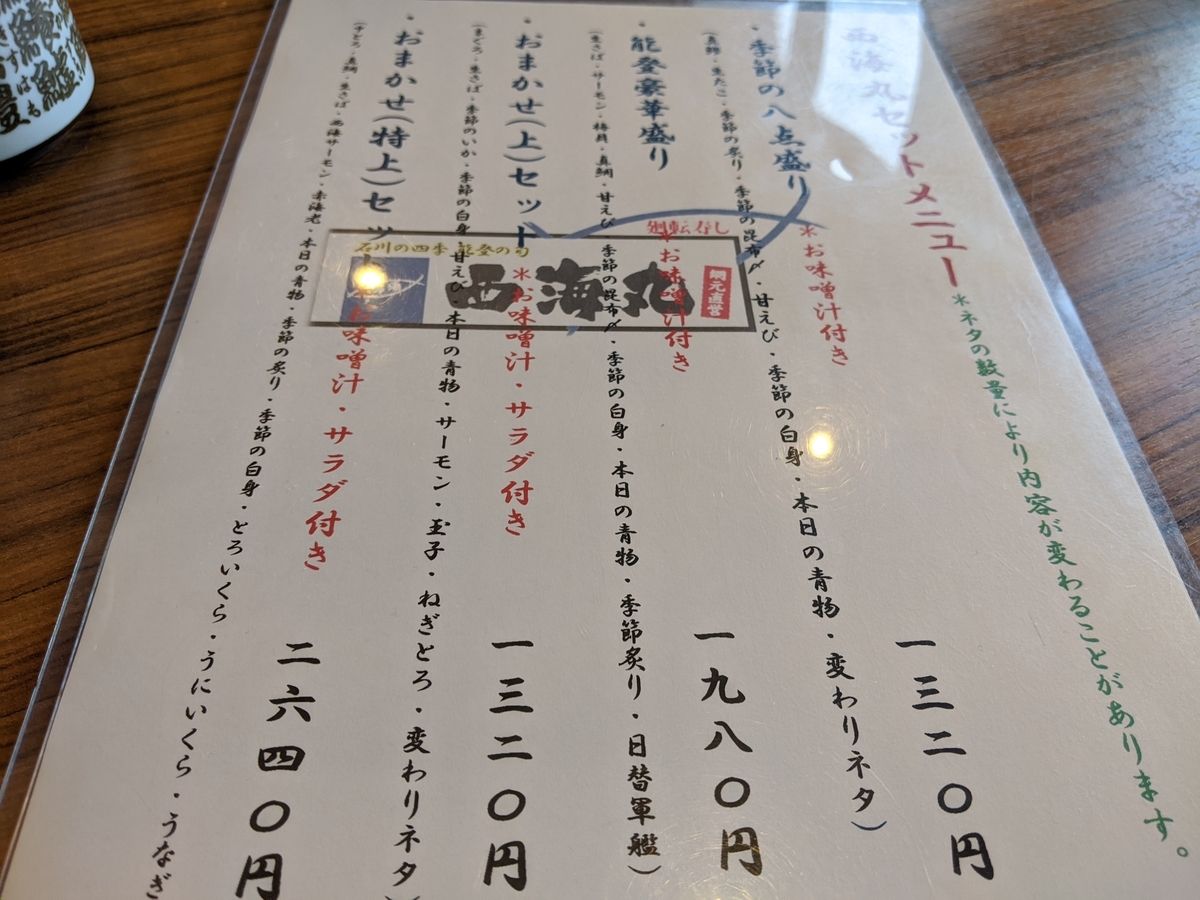 西海丸セットメニュー
*ネタの数量により内容が変わることがあります。
・季節の八点盛り
*お味噌汁付き
一三二〇円
(真鯛・生たこ・季節の炙り・季節の昆布〆・甘えび・季節の白身・本日の青物・変わりネタ)
・能登豪華盛り
*お味噌汁付き
一九八〇円
(生さば・サーモン・梅貝・真鯛・甘えび・季節の昆布〆・季節の白身・本日の青物・季節炙り・日替軍艦)
・おまかせ(上)セット
*お味噌汁・サラダ付き
一三二〇円
(まぐろ・生さば・季節のいか・季節の白身・甘えび・本日の青物・サーモン・玉子・ねぎとろ・変わりネタ)
・おまかせ(特上)セット
*お味噌汁・サラダ付き
二六四〇円
(中とろ・真鯛・生さば・西海サーモン・赤海老・本日の青物・季節の炙り・季節の白身・とろいくら・うにいくら・うなぎ
廻転寿し
石川の四季 能登の旬
西海丸
網元直営